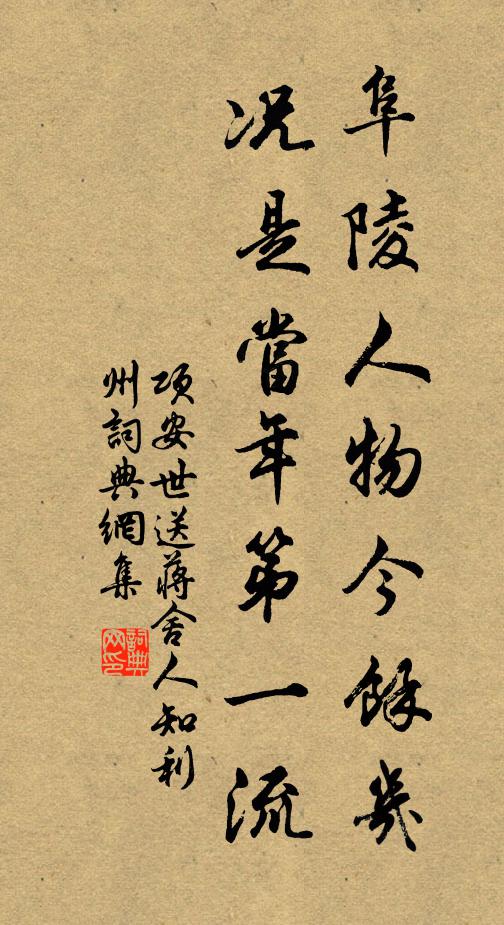 阜陵人物今餘幾
况是當年第一流
項安世送蔣舍人知利
州詞典網集
詞典网印